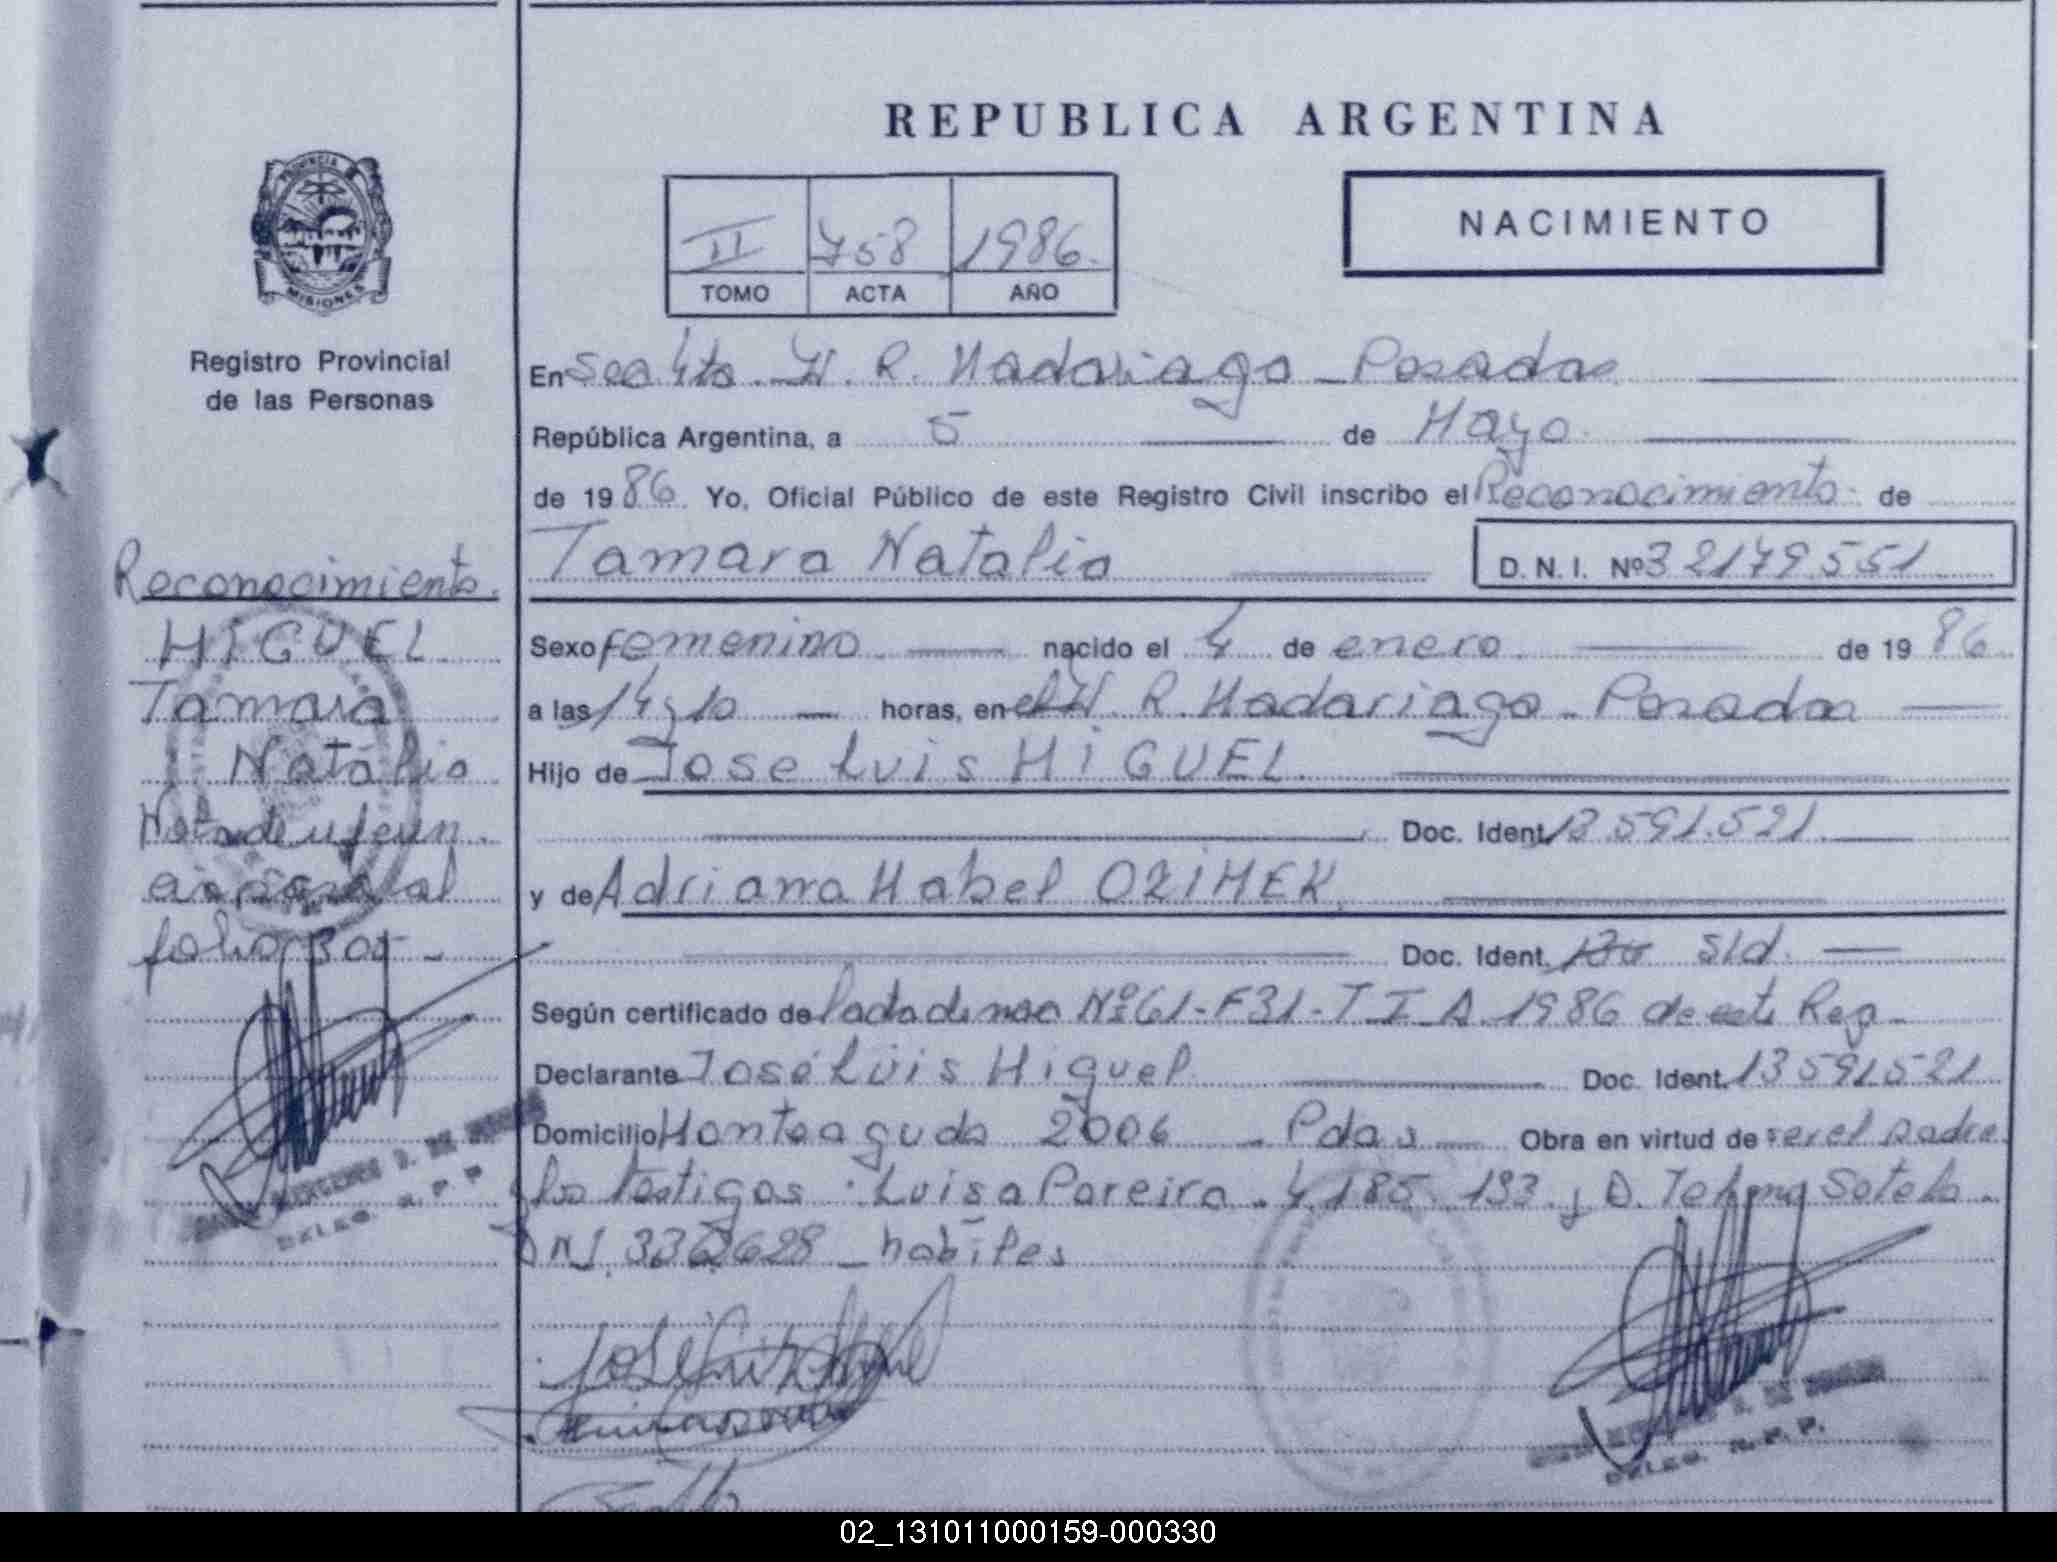 REPUBLICA ARGENTINA
NACIMIENTO
II 758 1986
TOMO ACTA AÑO
PROVINCIA DE
MISIONES
Registro Provincial
de las Personas
Reconocimiento.
MIGUEL
Tamara
Natalia
Nota de
al
folio 305 -
DELEG. R. P. P.
En Secc 4ta H. R. Madariaga - Posadas
República Argentina, a 5 de Mayo.
de 19 86. Yo, Oficial Público de este Registro Civil inscribo el Reconocimiento de
Tamara Natalia D. N. I. Nº 32179551
Sexo femenino nacido el 4 de enero de 19 86
a las 14 y 10 horas, en el H. R. Madariaga - Posadas
Hijo de Jose Luis MIGUEL
Doc. Ident. 13.591.521
y de Adriana Mabel OZIMEK
Doc. Ident. s/d.
Según certificado de Nº 61 - F31 - T I A. 1986 de este Reg
Declarante José Luis Miguel Doc. Ident. 13591521
Domicilio Monteagudo 2006 - Pdas Obra en virtud de ser el padre
los testigos: Luisa Pareira - 4.185.193 y D. Telma Sotelo -
DNI. 3362628 - hábiles
DELEG. R. P. P.
02_131011000159-000330